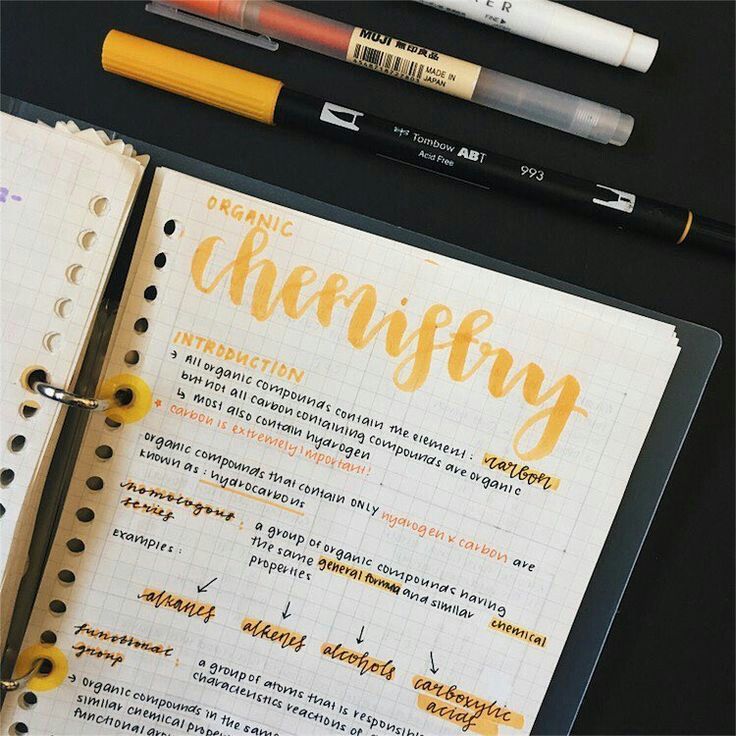 TER
FINE
MUJI 無印良品
MADE IN
JAPAN
Tombow ABT
Acid Free
993
ORGANIC
chemistry
INTRODUCTION
→ All organic compounds contain the element : carbon
but not all carbon containing compounds are organic
↳ most also contain hydrogen
* carbon is extremely important!
organic compounds that contain only hydrogen & carbon are
known as : hydrocarbons
homologous
series : a group of organic compounds having
the same general formula and similar chemical
properties
Examples :
alkanes
alkenes
alcohols
carboxylic
acids
functional
group : a group of atoms that is responsible
characteristics reactions of a
→ organic compounds in the same
similar chemical
functional